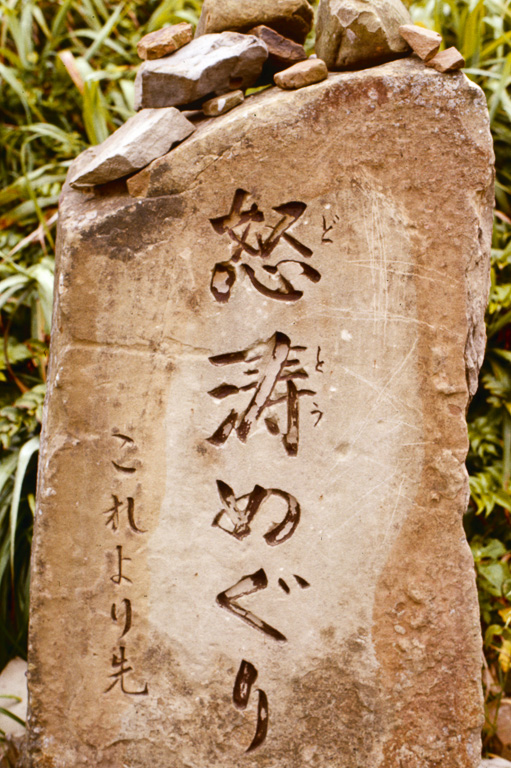 怒濤めぐり
どとう
これより先